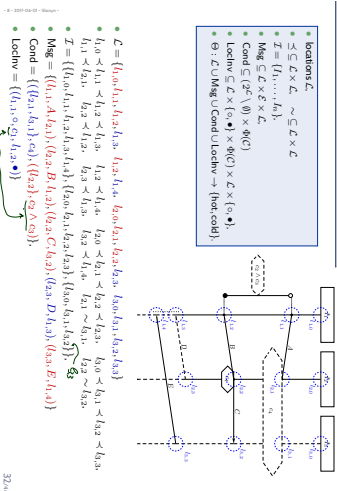 – 8 – 2017-06-12 – Sbanysyn –
• locations ℒ,
• ⪯ ⊆ ℒ × ℒ, ∼ ⊆ ℒ × ℒ
• ℐ = {I₁, …, Iₙ},
• Msg ⊆ ℒ × ℰ × ℒ,
• Cond ⊆ (2^ℒ \ ∅) × Φ(𝒞)
• LocInv ⊆ ℒ × {∘, •} × Φ(𝒞) × ℒ × {∘, •},
• Θ : ℒ ∪ Msg ∪ Cond ∪ LocInv → {hot, cold}.
l₁,₀
l₂,₀
l₃,₀
l₁,₁
l₂,₁
l₃,₁
A
c₄
c₂ ∧ c₃
l₁,₂
l₂,₂
l₃,₂
B
C
l₂,₃
D
l₁,₃
l₁,₄
l₃,₃
E
• ℒ = {l₁,₀, l₁,₁, l₁,₂, l₁,₃, l₁,₂, l₁,₄, l₂,₀, l₂,₁, l₂,₂, l₂,₃, l₃,₀, l₃,₁, l₃,₂, l₃,₃}
• l₁,₀ ≺ l₁,₁ ≺ l₁,₂ ≺ l₁,₃, l₁,₂ ≺ l₁,₄, l₂,₀ ≺ l₂,₁ ≺ l₂,₂ ≺ l₂,₃, l₃,₀ ≺ l₃,₁ ≺ l₃,₂ ≺ l₃,₃,
l₁,₁ ≺ l₂,₁, l₂,₂ ≺ l₁,₂, l₂,₃ ≺ l₁,₃, l₃,₂ ≺ l₁,₄, l₂,₁ ∼ l₃,₁, l₂,₂ ∼ l₃,₂,
• ℐ = {{l₁,₀, l₁,₁, l₁,₂, l₁,₃, l₁,₄}, {l₂,₀, l₂,₁, l₂,₂, l₂,₃}, {l₃,₀, l₃,₁, l₃,₂}},
• Msg = {(l₁,₁, A, l₂,₁), (l₂,₂, B, l₁,₂), (l₂,₂, C, l₃,₂), (l₂,₃, D, l₁,₃), (l₃,₃, E, l₁,₄)}
• Cond = {({l₂,₁, l₃,₁}, c₄), ({l₂,₂}, c₂ ∧ c₃)},
• LocInv = {(l₁,₁, ∘, c₁, l₁,₂, •)}
32/4